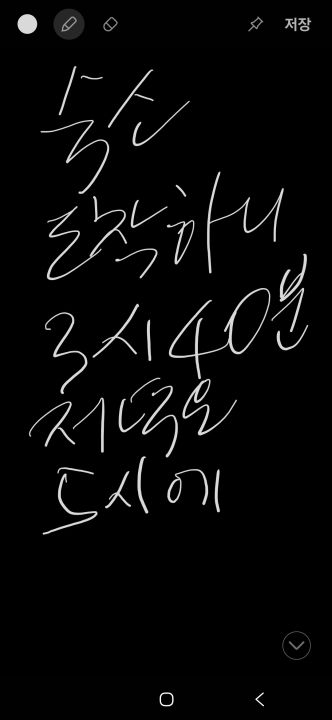 저장
숙소
도착하니
3시 40분
저녁은
5시에